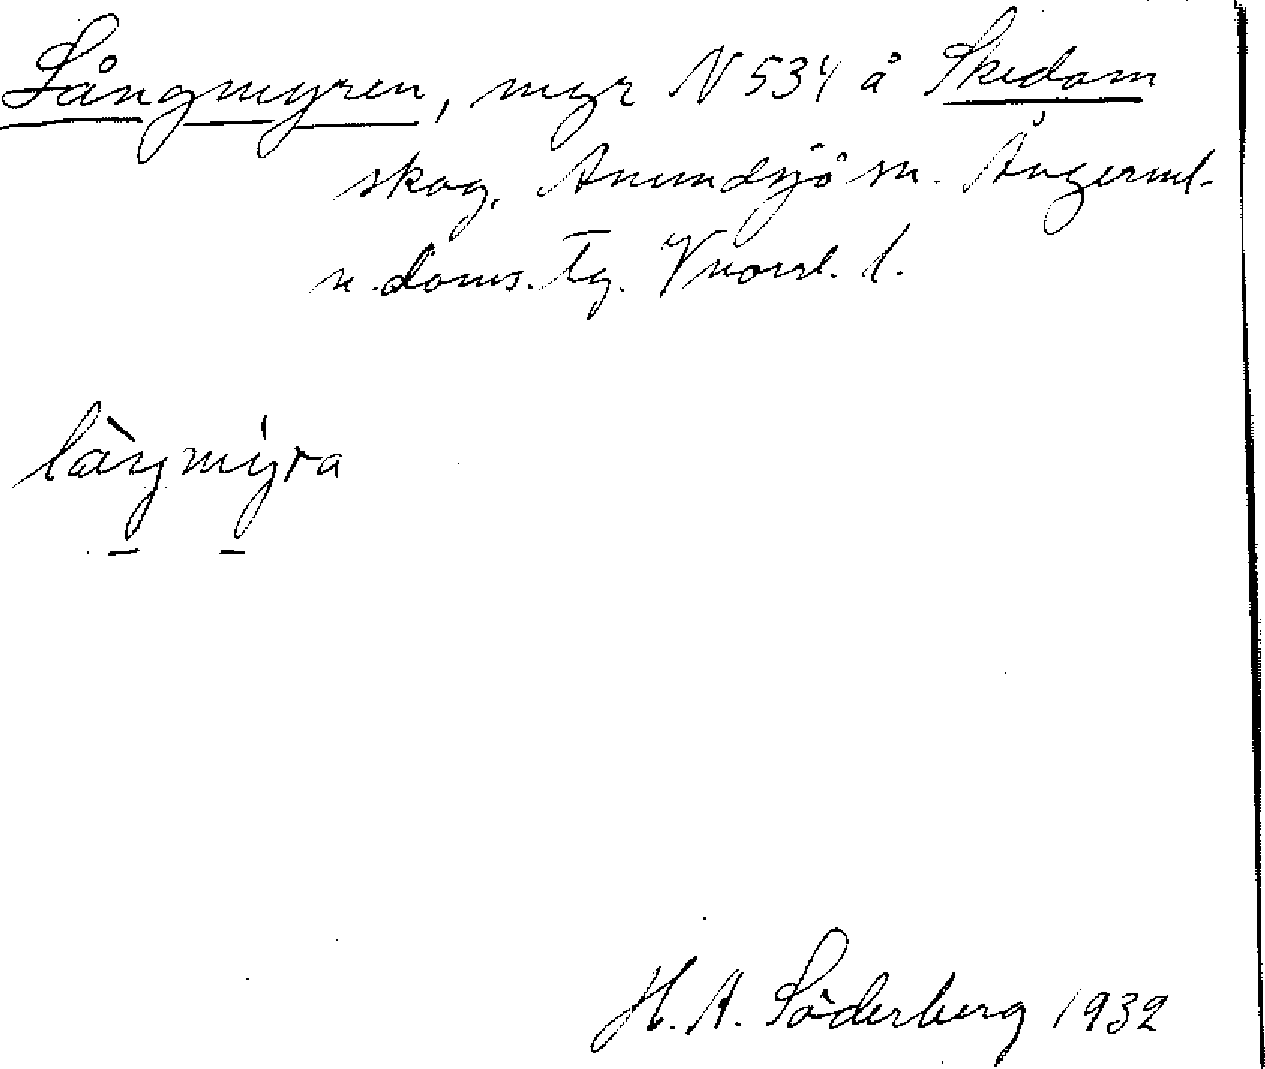 Långmyren, myr N 534 å Skedom
skog, Anundsjö sn. Ångerml.
n. doms. Tg. Vnorrl. l.
làŋmýra
H. A. Söderberg 1932